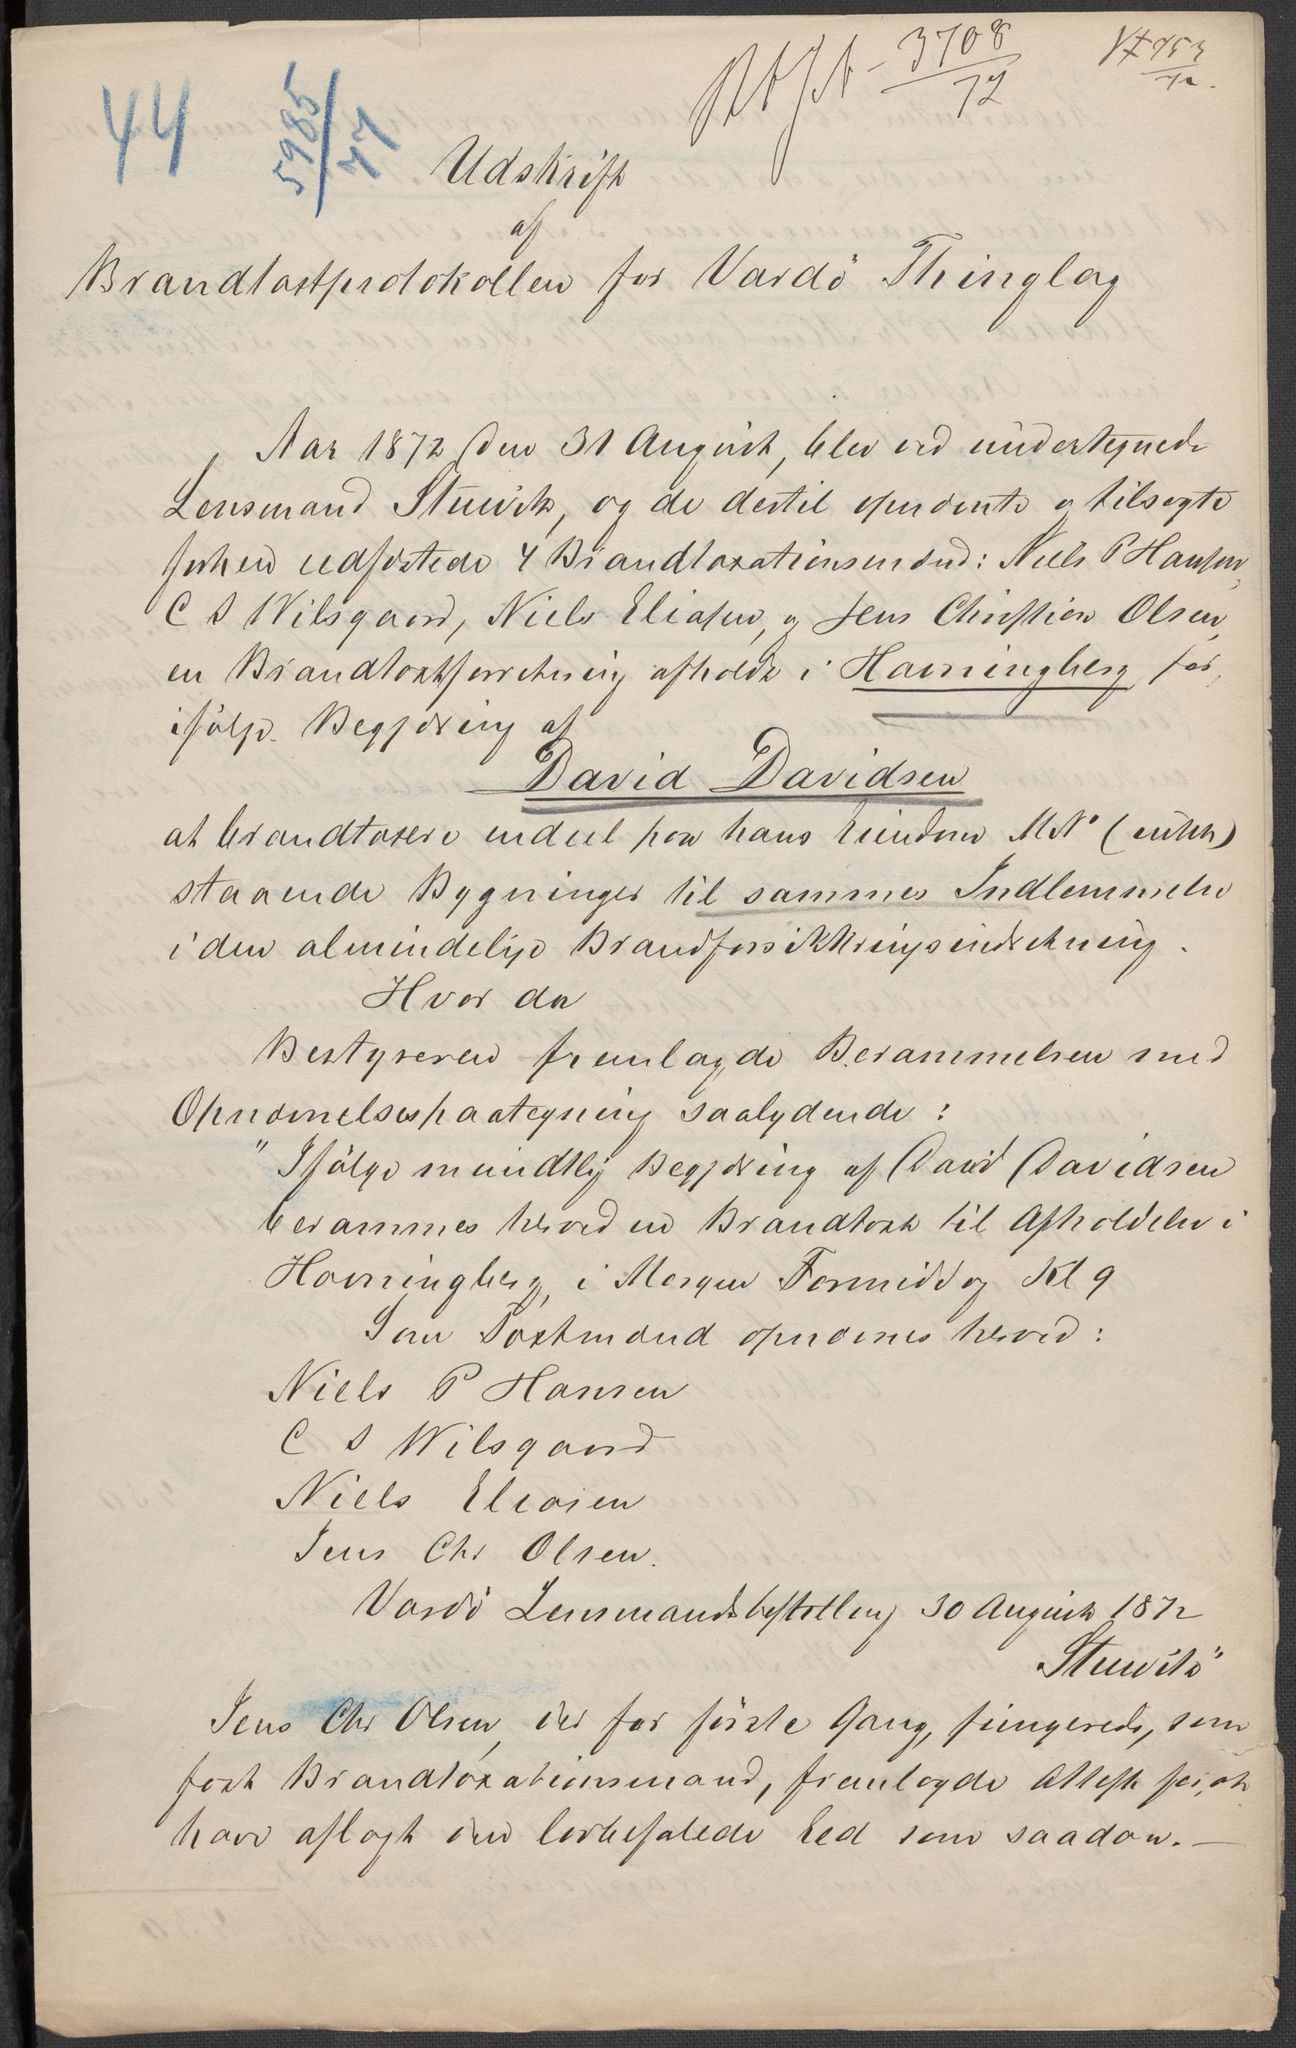 44
5985/77
3708/72
Udskrift
af
Brandtaxtprotokollen for Vardö Thinglag
Aar 1872 den 31 August, blev ved undertegnede
Lensmand Stuwitz, og de dertil opnævnte og tilsagte
forhen udførte 4 Brandtaxationsmænd: Niels P Hansen,
C S Wilsgaard, Niels Eliasen, og Jens Christian Olsen,
en Brandtaxtforretning afholdt i Havningberg for,
ifölge Begjæring af
David Davidsen
at brandtaxere endeel paa hans Eiendom M.N° (ukjt)
staaende Bygninger til sammes Indlemmelse
i den almindelige Brandforsikkringsindretning.
Hvor da
Bestyreren fremlagde Berammelsen med
Opnævnelsespaategning saalydende:
"Ifölge mundtlig Begjæring af David Davidsen
berammes herved en Brandtaxt til Afholdelse i
Havningberg, i Morgen Formiddag Kl 9
Som Taxtmænd opnævnes herved:
Niels P Hansen
C S Wilsgaard
Niels Eliasen
Jens Chr Olsen.
Vardö Lensmandsbestilling 30 August 1872
Stuwitz"
Jens Chr Olsen, der for förste Gang, fungerede, som
fast Brandtaxationsmand, fremlagde Attest for, at
have aflagt den lovbefalede Eed som saadan. —